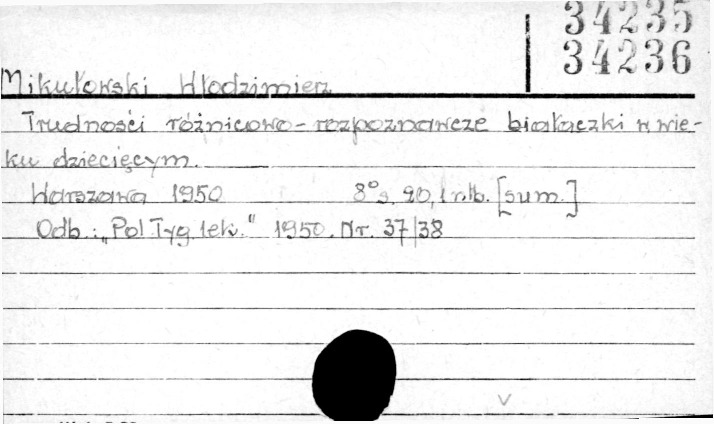 34235
34236
Mikułowski Włodzimierz
Trudności różnicowo-rozpoznawcze białaczki w wie-
ku dziecięcym.
Warszawa 1950 8° s. 20, 1 nlb. [sum.]
Odb.: „Pol Tyg. lek." 1950. Nr. 37/38